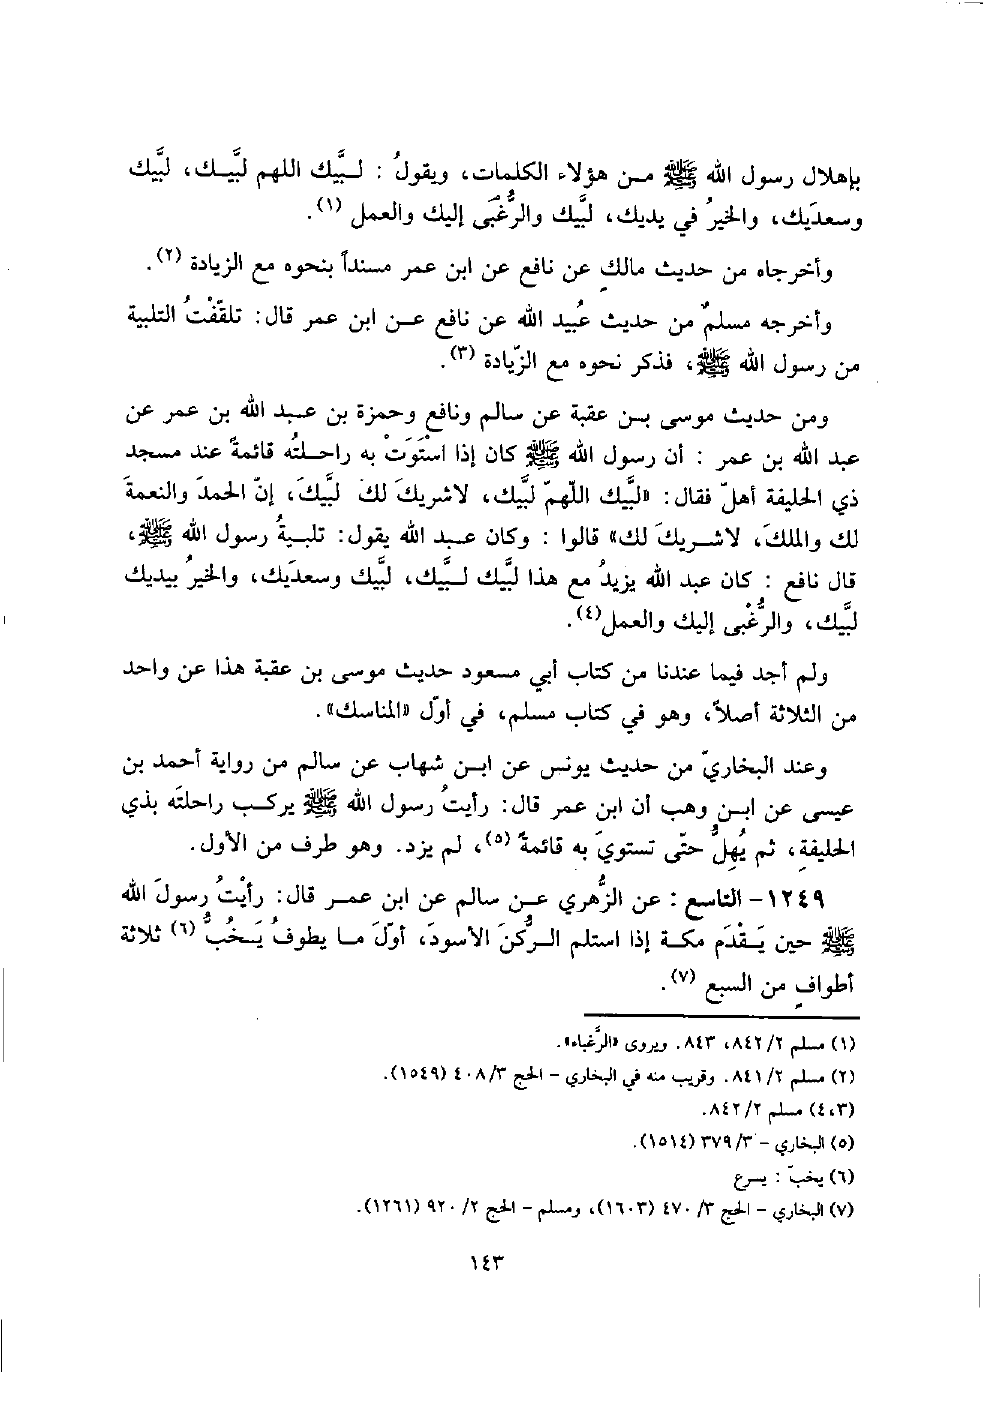 بإهلال رسول الله ﷺ من هؤلاء الكلمات، ويقولُ : لبَّيك اللهم لبَّيك، لبَّيك
وسعدَيك، والخيرُ في يديك، لبَّيك والرُّغَبَى إليك والعمل (١).
وأخرجاه من حديث مالكٍ عن نافع عن ابن عمر مسنداً بنحوه مع الزيادة (٢).
وأخرجه مسلمٌ من حديث عُبيد الله عن نافع عن ابن عمر قال: تلقّفْتُ التلبية
من رسول الله ﷺ، فذكر نحوه مع الزّيادة (٣).
ومن حديث موسى بن عقبة عن سالم ونافع وحمزة بن عبد الله بن عمر عن
عبد الله بن عمر : أن رسول الله ﷺ كان إذا اسْتَوَتْ به راحلتُه قائمةً عند مسجد
ذي الحليفة أهلّ فقال: «لبَّيك اللّهمّ لبَّيك، لاشريكَ لك لبَّيكَ، إنّ الحمدَ والنعمةَ
لك والملكَ، لاشريكَ لك» قالوا : وكان عبد الله يقول: تلبيةُ رسول الله ﷺ،
قال نافع : كان عبد الله يزيدُ مع هذا لبَّيك لبَّيك، لبَّيك وسعدَيك، والخيرُ بيديك
لبَّيك، والرُّغْبى إليك والعمل(٤).
ولم أجد فيما عندنا من كتاب أبي مسعود حديث موسى بن عقبة هذا عن واحد
من الثلاثة أصلاً، وهو في كتاب مسلم، في أوّل «المناسك».
وعند البخاريّ من حديث يونس عن ابن شهاب عن سالم من رواية أحمد بن
عيسى عن ابن وهب أن ابن عمر قال: رأيتُ رسول الله ﷺ يركب راحلتَه بذي
الحليفةِ، ثم يُهِلُّ حتّى تستويَ به قائمةً (٥)، لم يزد. وهو طرف من الأول.
١٢٤٩- التاسع : عن الزُّهري عن سالم عن ابن عمر قال: رأيْتُ رسولَ الله
ﷺ حين يَقْدَم مكة إذا استلم الرُّكنَ الأسودَ، أوّلَ ما يطوفُ يَخُبُّ (٦) ثلاثة
أطوافٍ من السبع (٧).
(١) مسلم ٢/ ٨٤٢، ٨٤٣. ويروى «الرَّغباء».
(٢) مسلم ٢/ ٨٤١. وقريب منه في البخاري – الحج ٣/ ٤٠٨ (١٥٤٩).
(٣،٤) مسلم ٢/ ٨٤٢.
(٥) البخاري – ٣/ ٣٧٩ (١٥١٤).
(٦) يخبّ : يسرع
(٧) البخاري – الحج ٣/ ٤٧٠ (١٦٠٣)، ومسلم – الحج ٢/ ٩٢٠ (١٢٦١).
١٤٣